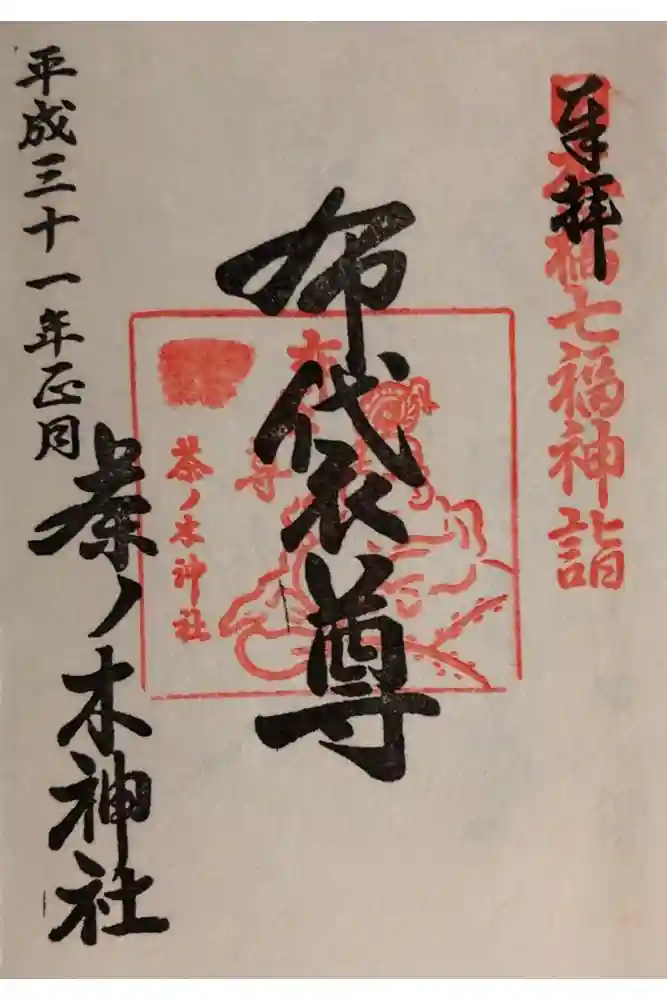 奉拝
日本橋七福神詣
布袋尊
茶ノ木神社
平成三十一年正月
茶ノ木神社